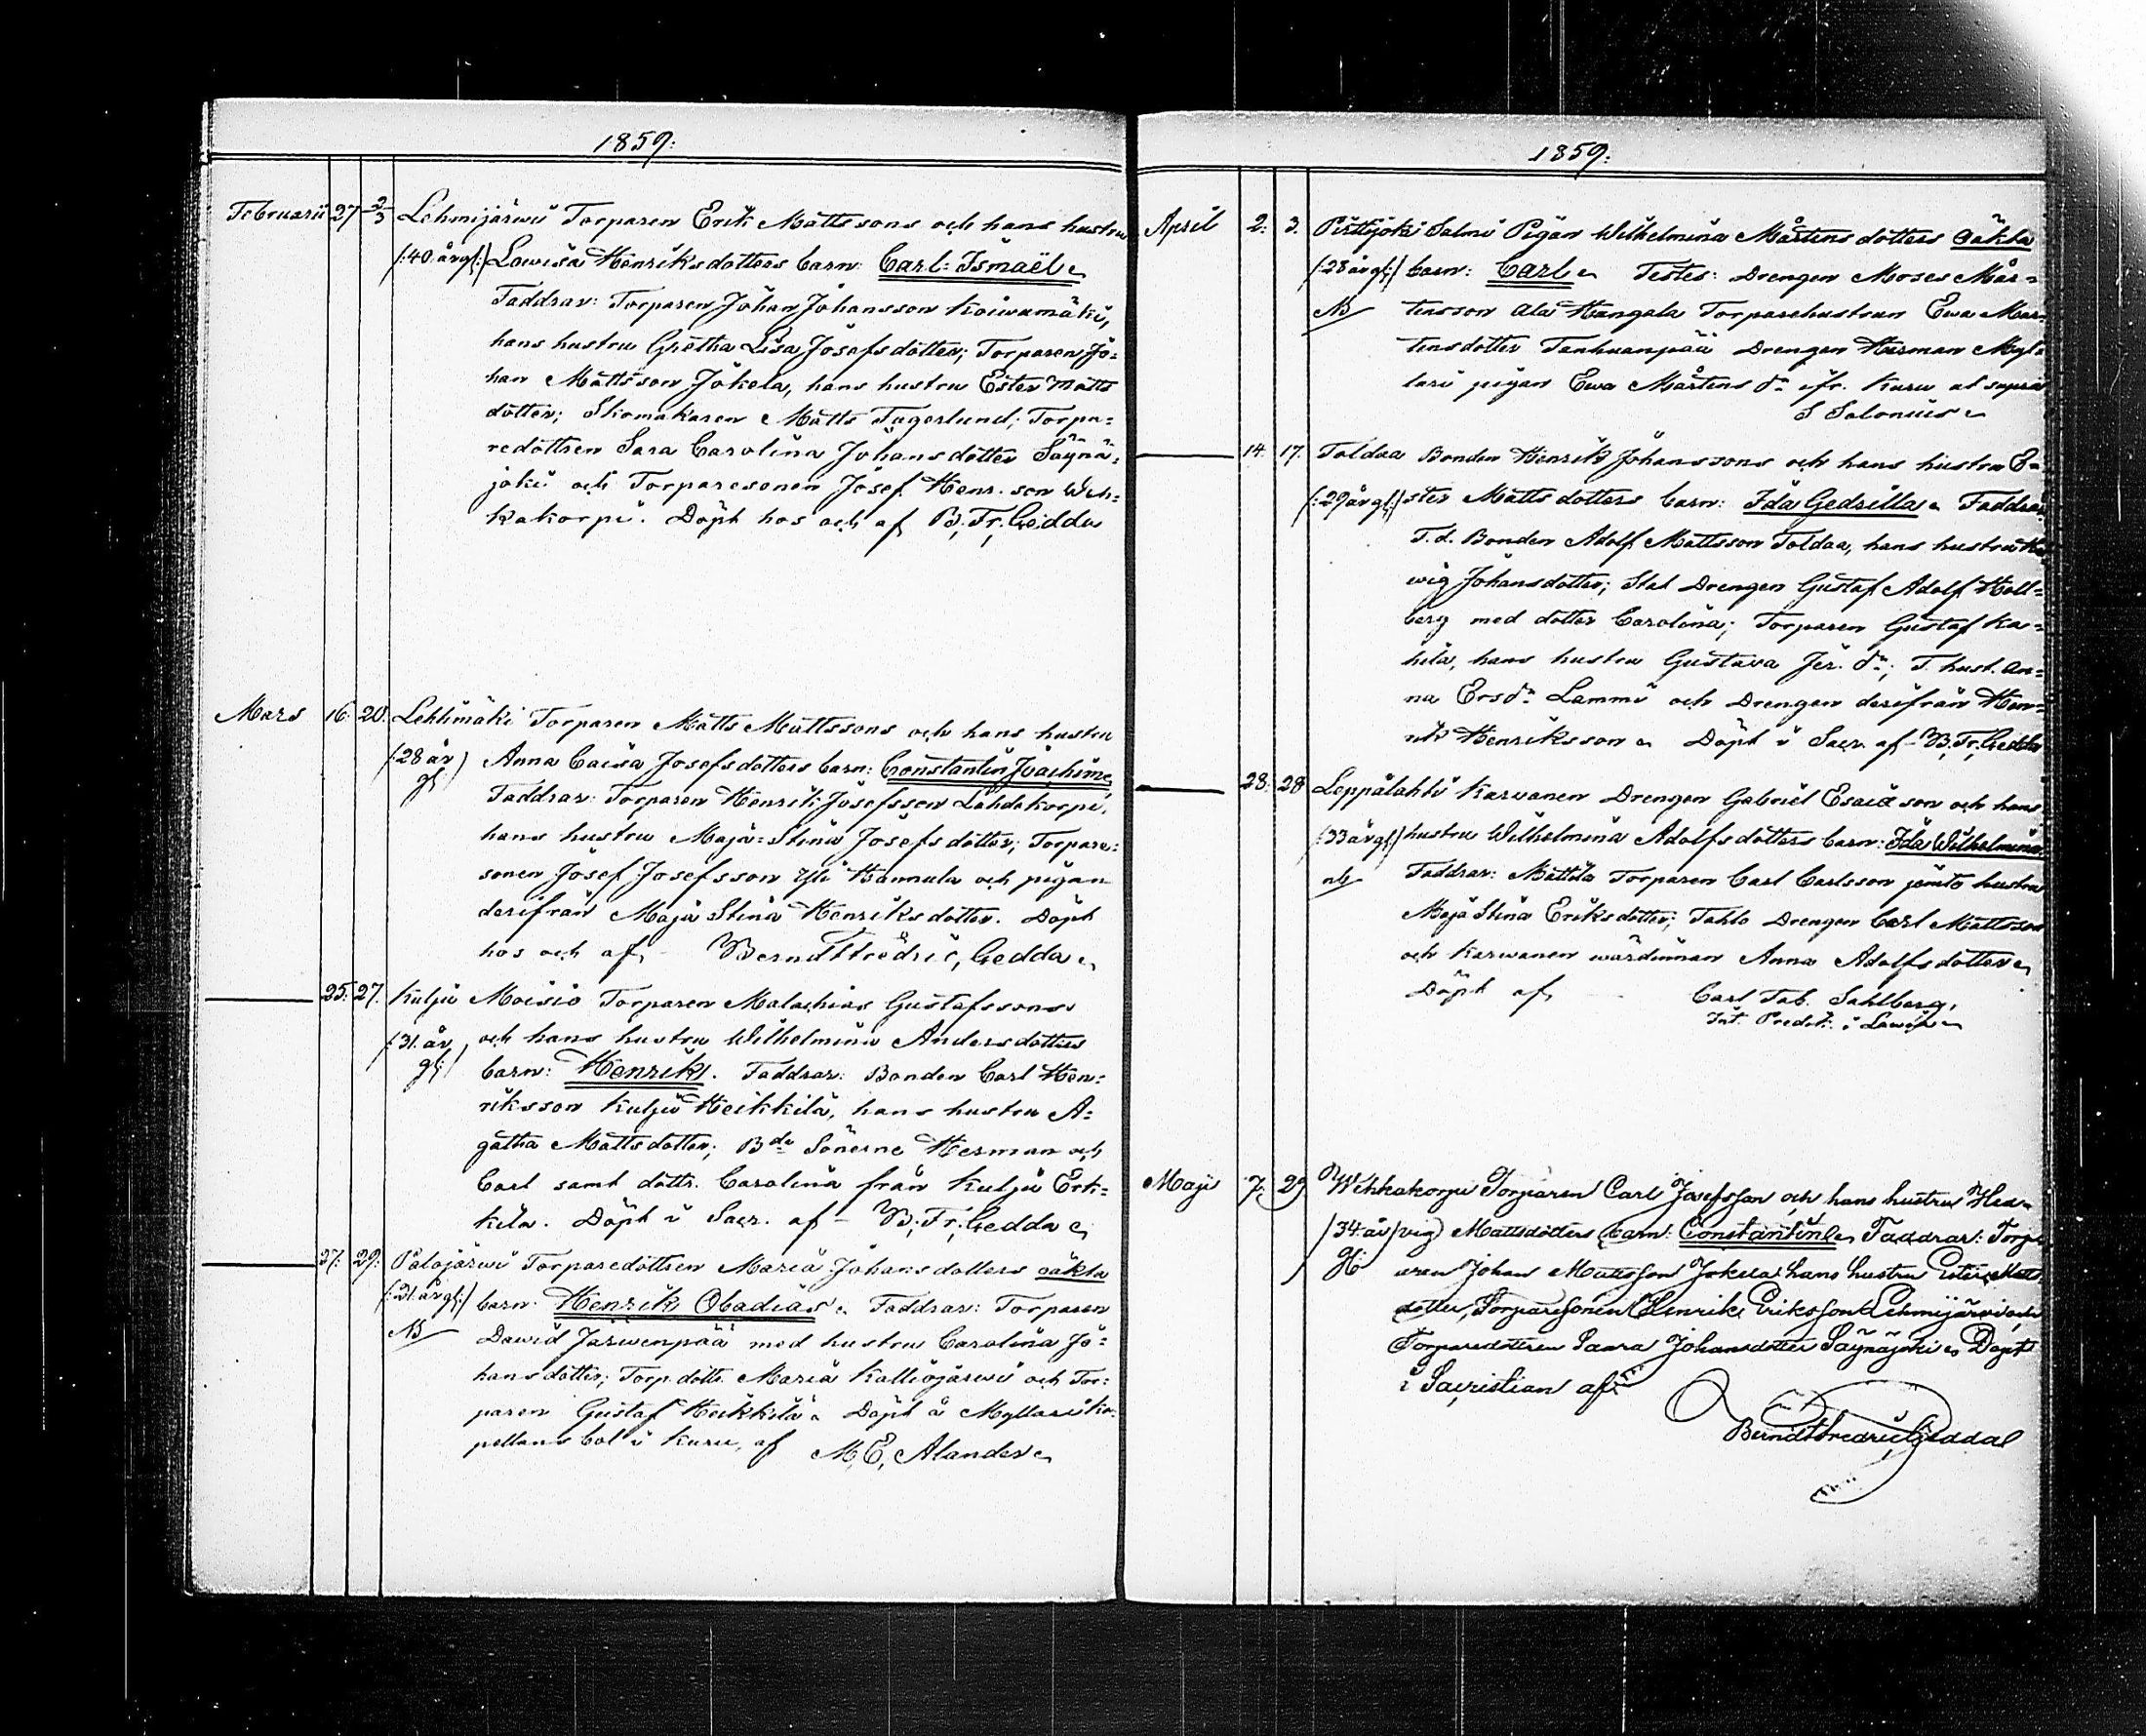 1859:
Februarii 27 2/3 Lehmijärwi Torparen Erik Mattssons och hans hustru
/:40 årgl:/ Lowisa Henriksdotters barn: Carl: Ismaël
Faddrar: Torparen Johan Johansson Koiwumäki,
hans hustru Gretha Lisa Josefsdotter; Torparen Jo=
han Mattsson Jokela, hans hustru Ester Matts
dotter; Skomakaren Matts Fagerlund; Torpa=
redottren Sara Carolina Johansdotter Säynä=
joki och Torparesonen Josef Henr. son Weh=
kakorpi. Döpt hos och af B. Fr. Gedda
Mars 16. 20. Lehtimäki Torparen Matts Mattssons och hans hustru
/:28 år Anna Caisa Josefsdotters barn: Constantin Joachim
gl:/
Faddrar: Torparen Henrik Josefsson Lähdekorpi,
hans hustru Maja=Stina Josefsdotter; Torpare=
sonen Josef Josefsson Yli Hannula och pigan
derifrån Maja Stina Henriksdotter. Döpt
hos och af Berndt Fredric Gedda
25. 27. Kulju Moisio Torparen Malachias Gustafssons
/:31. år och hans hustru Wilhelmina Andersdotters
gl:/ barn: Henrik. Faddrar: Bonden Carl Hen=
riksson Kulju Heikkilä, hans hustru A=
gatha Mattsdotter; Bde Sönerne Herman och
Carl samt dottr. Carolina från Kulju Erk=
kilä. Döpt i Sacr. af B. Fr. Gedda
27. 29. Palojärwi Torparedottren Maria Johansdotters oäkta
/:21. årgl:/ barn: Henrik Obadias Faddrar: Torparen
NB Dawid Järwenpää med hustru Carolina Jo=
hansdotter; Torp. dottr. Maria Kalliojärwi och Tor=
paren Gustaf Heikkilä. Döpt å Myllari Ka=
pellans bol i Kuru, af M. E. Alander
1859:
April 2. 3. Pirttijoki Salmi Pigan Wilhelmina Mårtensdotters oäkta
/:28 årgl:/ barn: Carl Testes: Drengen Moses Mår=
NB tensson Ala Hangala Torparehustrun Ewa Mar=
tensdotter Tanhuanpää Drengen Herman Myl=
lari pigan Ewa Mårtens dr ifr. Kuru ut supra
S Salonius
14. 17. Toldaa Bonden Henrik Johanssons och hans hustru E=
/:29 årgl:/ ster Mattsdotters barn: Ida Gedsilla Faddrar
F. d. Bonden Adolf Mattsson Toldaa, hans hustru He
wig Johansdotter; Stat Drengen Gustaf Adolf Holl=
berg med dotter Carolina; Torparen Gustaf Ka=
hila, hans hustru Gustava Jer. dr; T. hust. An=
na Ersdr Lammi och Drengen derifrån Hen=
rik Henriksson Döpt i Sacr. af B. Fr. Gedda
28. 28 Leppälahti Karwanen Drengen Gabriel Esaiæ son och hans
/:33 årgl:/ hustru Wilhelmina Adolfsdotters barn: Ida Wilhelmina.
nb Faddrar: Mattila Torparen Carl Carlsson jemte hustru
Maja Stina Eriksdotter; Tahlo Drengen Carl Mattsson
och Karwanen wärdinnan Anna Adolfsdotter
Döpt af Carl Tab. Sahlberg,
Predik. i
Maji 7. 29 Wehkakorpi Torparen Carl Josefsson och hans hustru Hed=
/34 år/ vig Mattsdotters barn: Constantin Faddrar: Torpa
gl: aren Johan Mattsson Jokela hans hustru Ester Matts
dotter, Torparesonen Henrik Eriksson Lehmijärvi och
Torparedottren Saara Johansdotter Säynäjoki Döpt
i Sacristian af
Berndt Fredric Gedda